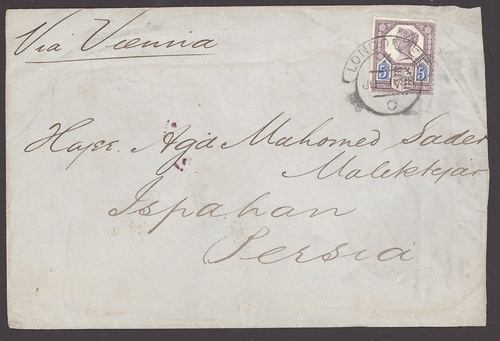 Via Vienna
LON
5 5
C
Hajee. Aga Mahomed Sader
Malektejar
Ispahan
Persia